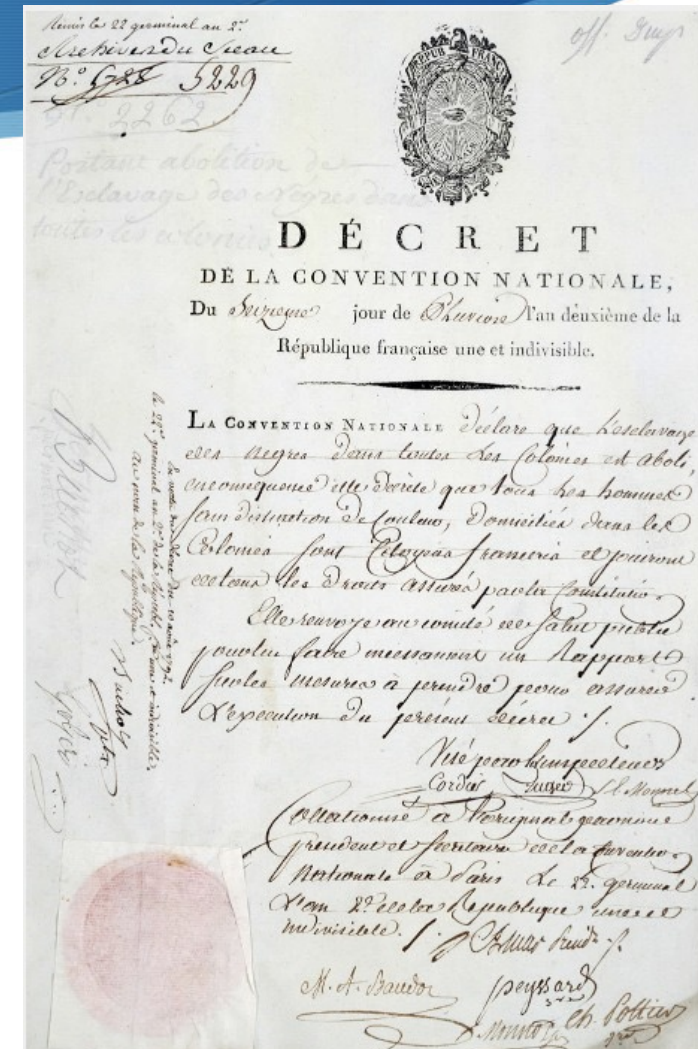 Remis le 22 germinal an 2e
Archives du Sceau
N.° 5728 5229
N.° 2262
Portant abolition de
l'Esclavage des Nègres dans
toutes les colonies
off.
RÉPUB FRANÇ
DÉCRET
DE LA CONVENTION NATIONALE,
Du Seizieme jour de Pluviose l'an deuxième de la
République française une et indivisible.
LA CONVENTION NATIONALE déclare que l'esclavage
des negres dans toutes les Colonies est aboli,
en consequence elle decrète que tous les hommes
sans distinction de couleur, domiciliés dans les
Colonies sont Citoyens francais et jouiront
de tous les droits assurés par la Constitution
Elle renvoye au comité de salut public
pour lui faire incessamment un Rapport
sur les mesures à prendre pour assurer
l'execution du présent decret ./.
Visé par l'inspecteur
Cordier Auger S. E. Monnel
Collationné à l'original par nous
president et Secretaire de la Convention
Nationale à Paris le 22. germinal
l'an 2e de la Republique une et
indivisible ./.
M. A. Baudot peyssard
Ch. Pottier
En vertu du décret du 10 août 1792.
le 22e germinal an 2e de la République, une et indivisible,
au nom de la République.
Buchot
Gohier